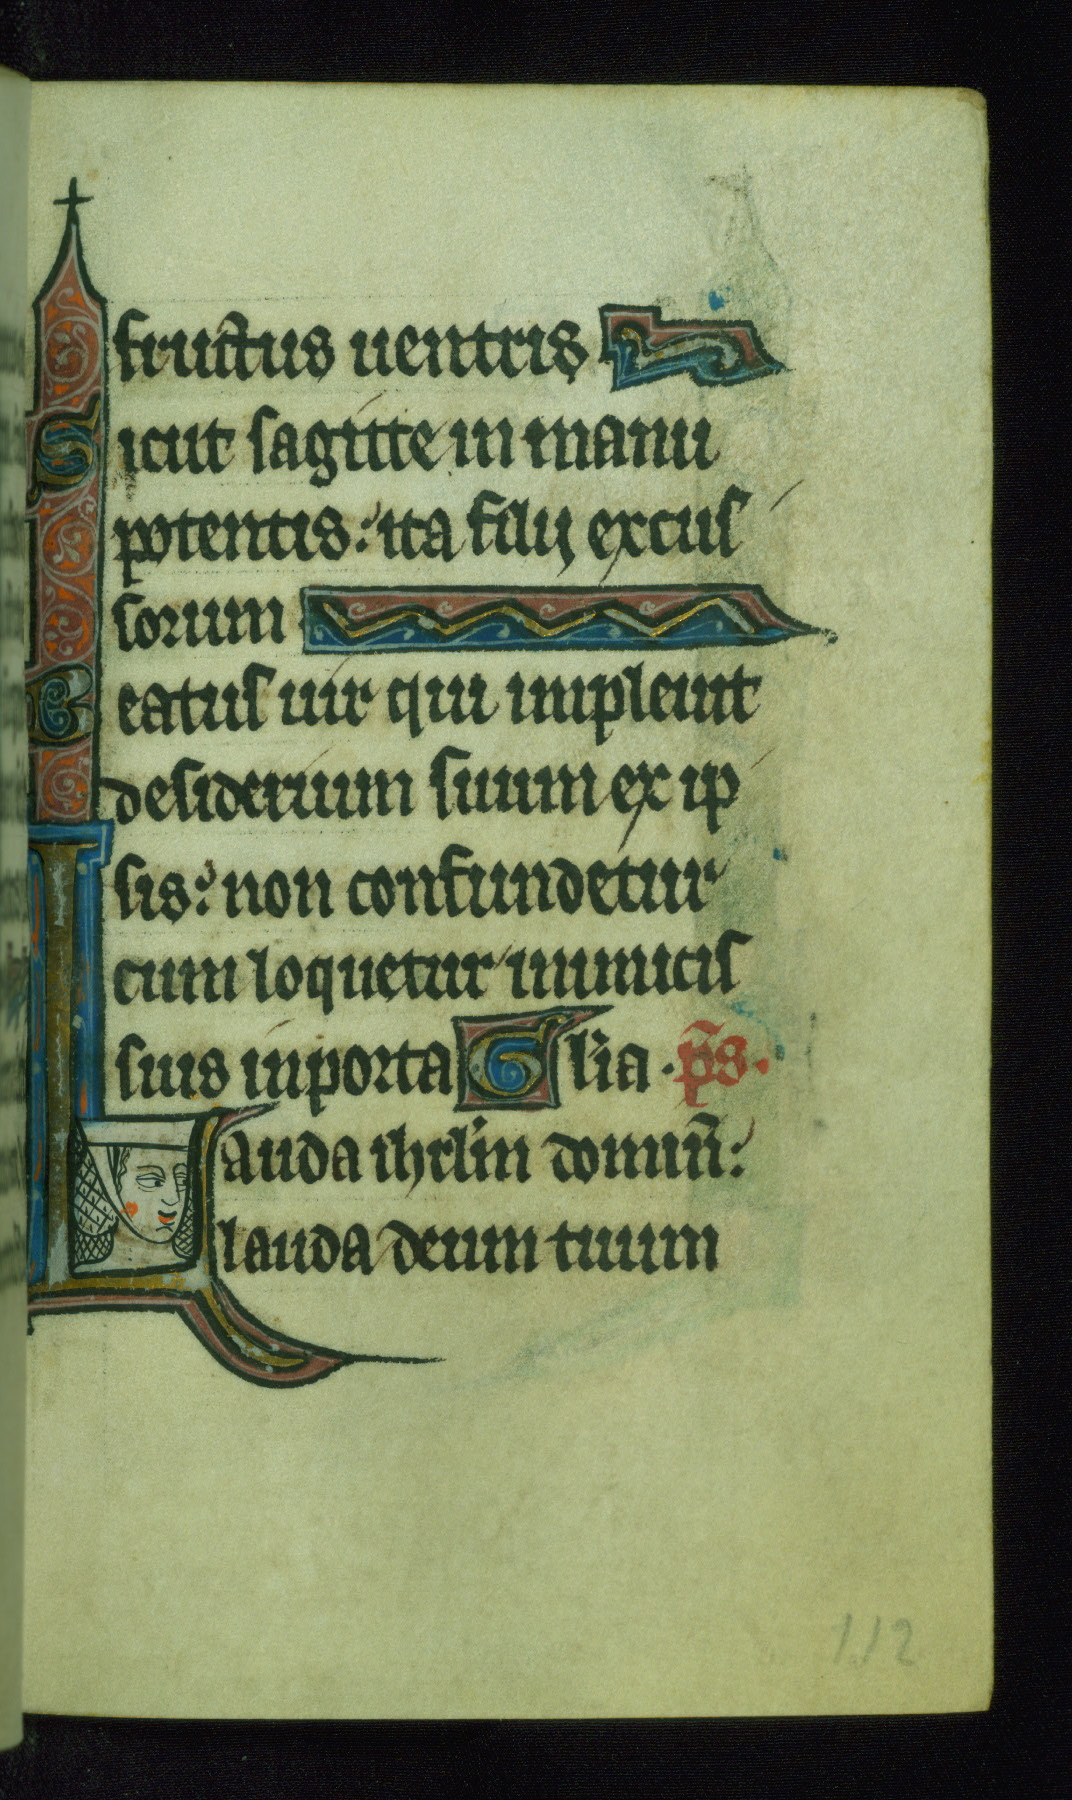 fructus uentris
Sicut sagitte in manu
potentis: ita filij excus
sorum
Beatus uir qui impleuit
desiderium suum ex ip
sis: non confundetur
cum loquetur inimicis
suis in porta Glia. ps.
Lauda ihrlm domin̄:
lauda deum tuum
112